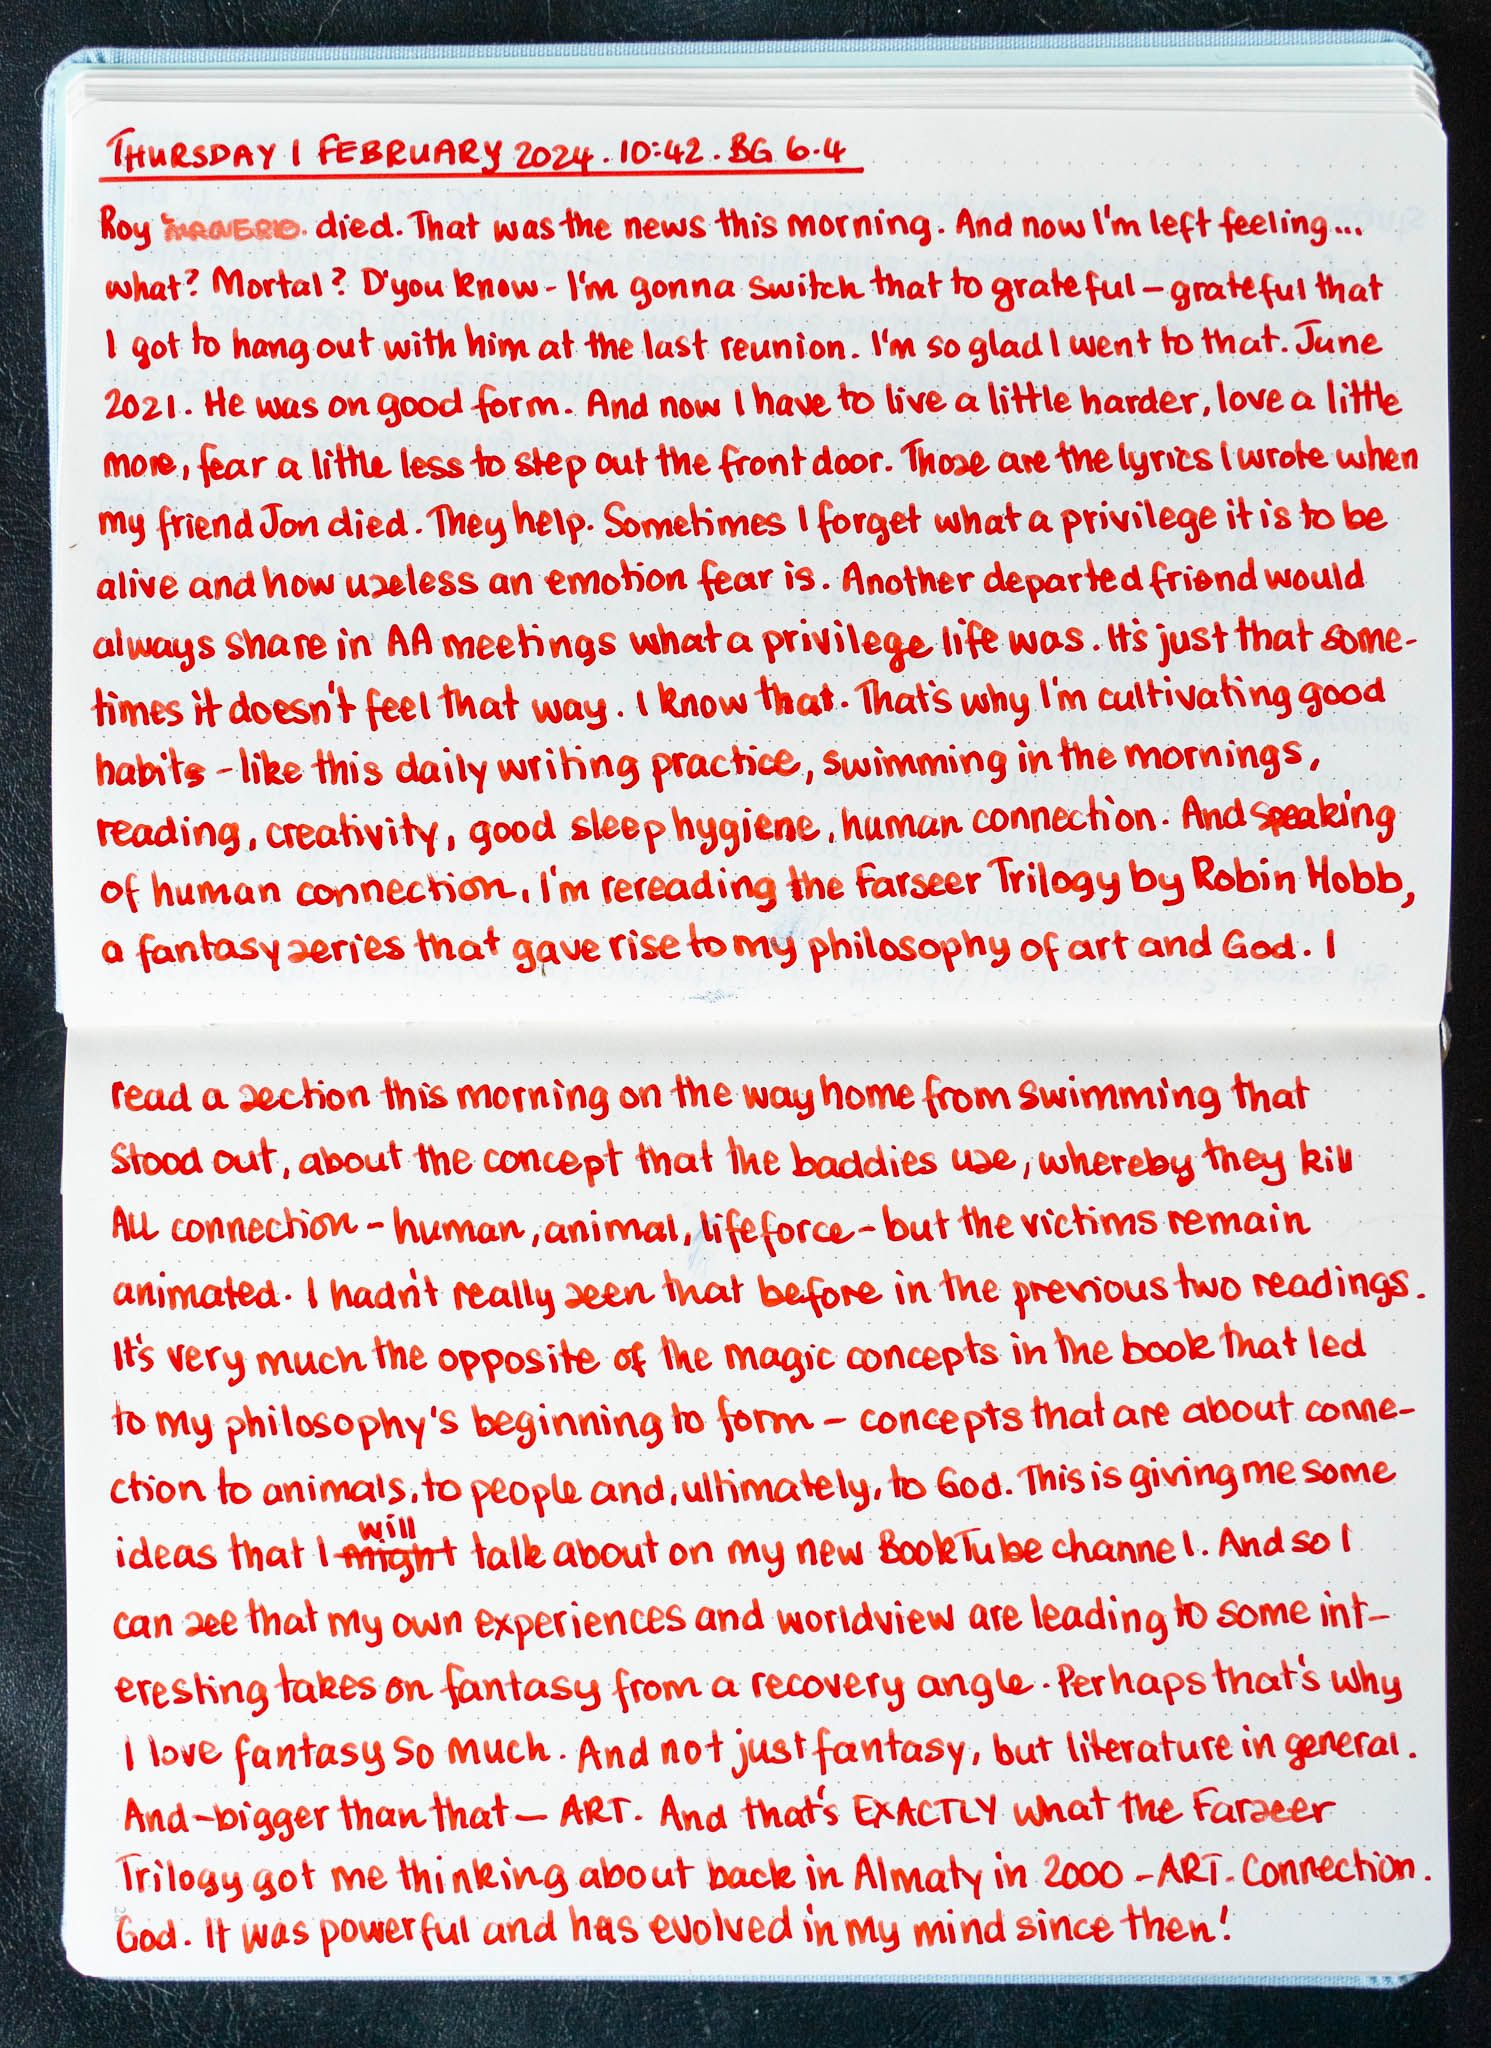 THURSDAY 1 FEBRUARY 2024. 10:42. BG 6.4
Roy died. That was the news this morning. And now I'm left feeling...
what? Mortal? D'you know - I'm gonna switch that to grateful - grateful that
I got to hang out with him at the last reunion. I'm so glad I went to that. June
2021. He was on good form. And now I have to live a little harder, love a little
more, fear a little less to step out the front door. Those are the lyrics I wrote when
my friend Jon died. They help. Sometimes I forget what a privilege it is to be
alive and how useless an emotion fear is. Another departed friend would
always share in AA meetings what a privilege life was. It's just that some-
times it doesn't feel that way. I know that. That's why I'm cultivating good
habits - like this daily writing practice, swimming in the mornings,
reading, creativity, good sleep hygiene, human connection. And speaking
of human connection, I'm rereading the Farseer Trilogy by Robin Hobb,
a fantasy series that gave rise to my philosophy of art and God. I
read a section this morning on the way home from swimming that
stood out, about the concept that the baddies use, whereby they kill
All connection - human, animal, lifeforce - but the victims remain
animated. I hadn't really seen that before in the previous two readings.
It's very much the opposite of the magic concepts in the book that led
to my philosophy's beginning to form - concepts that are about conne-
ction to animals, to people and, ultimately, to God. This is giving me some
ideas that I might will talk about on my new BookTube channel. And so I
can see that my own experiences and worldview are leading to some int-
eresting takes on fantasy from a recovery angle. Perhaps that's why
I love fantasy so much. And not just fantasy, but literature in general.
And - bigger than that - ART. And that's EXACTLY what the Farseer
Trilogy got me thinking about back in Almaty in 2000 - ART. Connection.
God. It was powerful and has evolved in my mind since then!